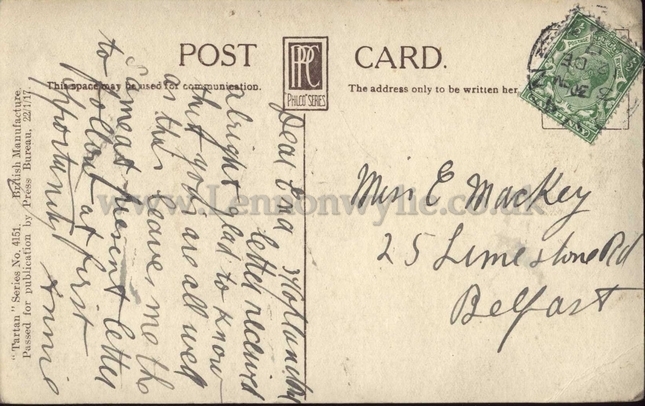 POST CARD.
PPC
PHILCO SERIES
This space may be used for communication.
The address only to be written here
"Tartan" Series No. 4151. British Manufacture.
Passed for publication by Press Bureau, 22/1/17.
Dear Ena
letter received
alright glad to know
that you are all well
as this leaves me the
same at present letter
to follow at first
opportunity Annie
Miss E Mackey
25 Limestone Rd
Belfast
www.Lennonwylie.co.uk